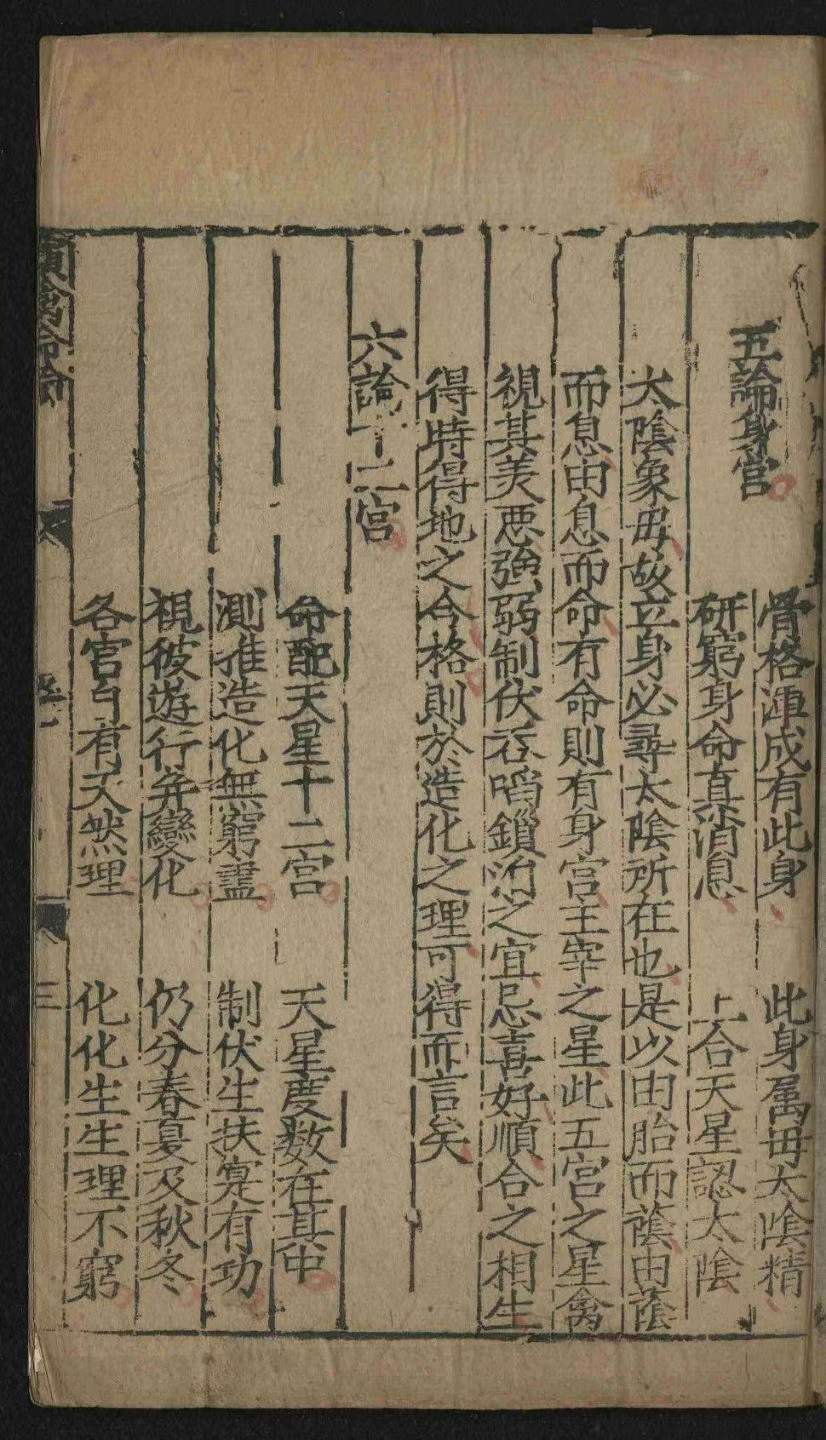 五論身宮
骨格渾成有此身　此身属毋太陰精
研窮身命真消息　上合天星認太陰
太陰象毋故立身必尋太陰所在也是以由胎而蔭由蔭
而息由息而命有命則有身宮主宰之星此五宮之星禽
視其美惡強弱制伏吞啗鎖泊之宜忌喜好順合之相生
得時得地之合格則於造化之理可得而言矣
六論十二宮
命配天星十二宮　天星度数在其中
測推造化無窮盡　制伏生扶寔有功
視彼遊行并變化　仍分春夏及秋冬
各宮自有天然理　化化生生理不窮
禽命
三